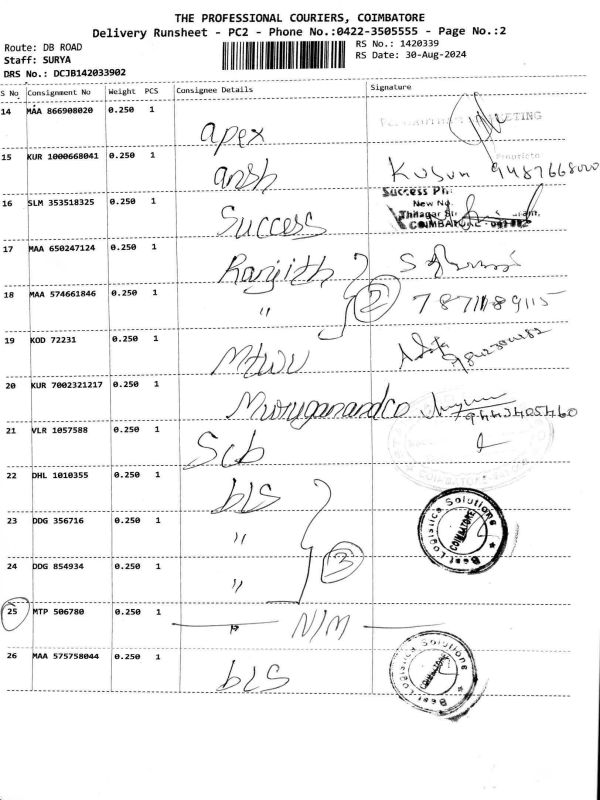 THE PROFESSIONAL COURIERS, COIMBATORE
Delivery Runsheet - PC2 - Phone No.:0422-3505555 - Page No.:2
Route: DB ROAD
Staff: SURYA
DRS No.: DCJB142033902
RS No.: 1420339
RS Date: 30-Aug-2024
S No Consignment No Weight PCS Consignee Details Signature
14 MAA 866908020 0.250 1 apex
15 KUR 1000668041 0.250 1 ansh Kusum
16 SLM 353518325 0.250 1 Success
Success Ph
New No.
Thilagar St
COIMBATORE
17 MAA 650247124 0.250 1 Ranjith
18 MAA 574661846 0.250 1 " 2
19 KOD 72231 0.250 1
20 KUR 7002321217 0.250 1 Muruganandco
21 VLR 1057588 0.250 1 Scb
22 DHL 1010355 0.250 1 bls
23 DDG 356716 0.250 1 "
24 DDG 854934 0.250 1 " 3
Best Logistics Solutions
COIMBATORE
25 MTP 506780 0.250 1 " N/M
26 MAA 575758044 0.250 1 bls
Best Logistics Solutions
COIMBATORE